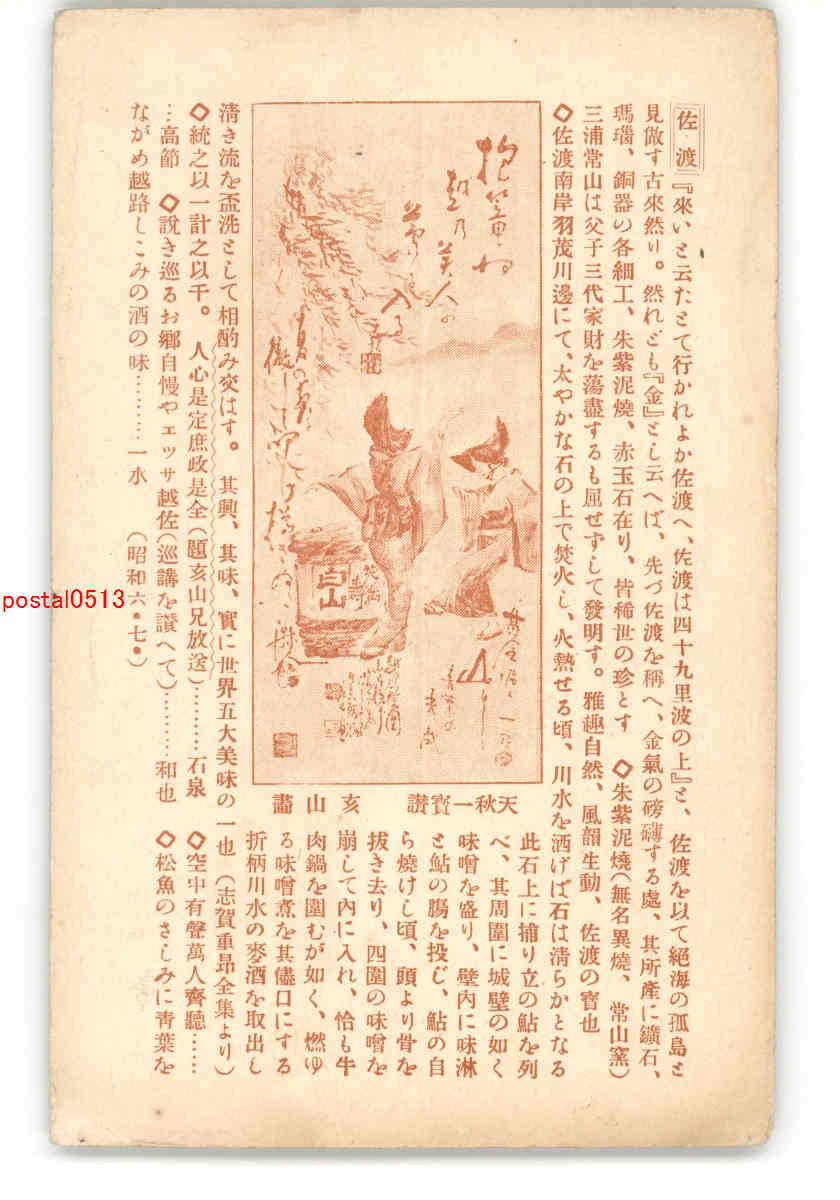 佐渡『來いと云たとて行かれよか佐渡へ、佐渡は四十九里波の上』と、佐渡を以て絕海の孤島と
見做す古來然り。然れども『金』とし云へば、先づ佐渡を稱へ、金氣の磅礴する處、其所產に鑛石、
瑪瑙、銅器の各細工、朱紫泥燒、赤玉石在り、皆稀世の珍とす ◇朱紫泥燒(無名異燒、常山窯)
三浦常山は父子三代家財を蕩盡するも屈せずして發明す。雅趣自然、風韻生動、佐渡の寶也
◇佐渡南岸羽茂川邊にて、太やかな石の上で焚火し、火熱せる頃、川水を洒げば石は清らかとなる
此石上に捕り立の鮎を列
べ、其周圍に城壁の如く
味噌を盛り、壁內に味淋
と鮎の膓を投じ、鮎の自
ら燒けし頃、頭より骨を
拔き去り、四圍の味噌を
崩して內に入れ、恰も牛
肉鍋を圍むが如く、燃ゆ
る味噌煮を其儘口にする
折柄川水の麥酒を取出し
清き流を盃洗として相酌み交はす。 其興、其味、實に世界五大美味の一也 (志賀重昻全集より)
◇統之以一計之以千。 人心是定庶政是全(題亥山兄放送)………石泉 ◇空中有聲萬人齊聽……
…高節 ◇說き巡るお鄕自慢やエッサ越佐(巡講を讃へて)………和也 ◇松魚のさしみに靑葉を
ながめ越路しこみの酒の味………一水 (昭和六・七・)
越乃
美人の
入る
白山
天秋一寶讃 亥山畵
postal0513